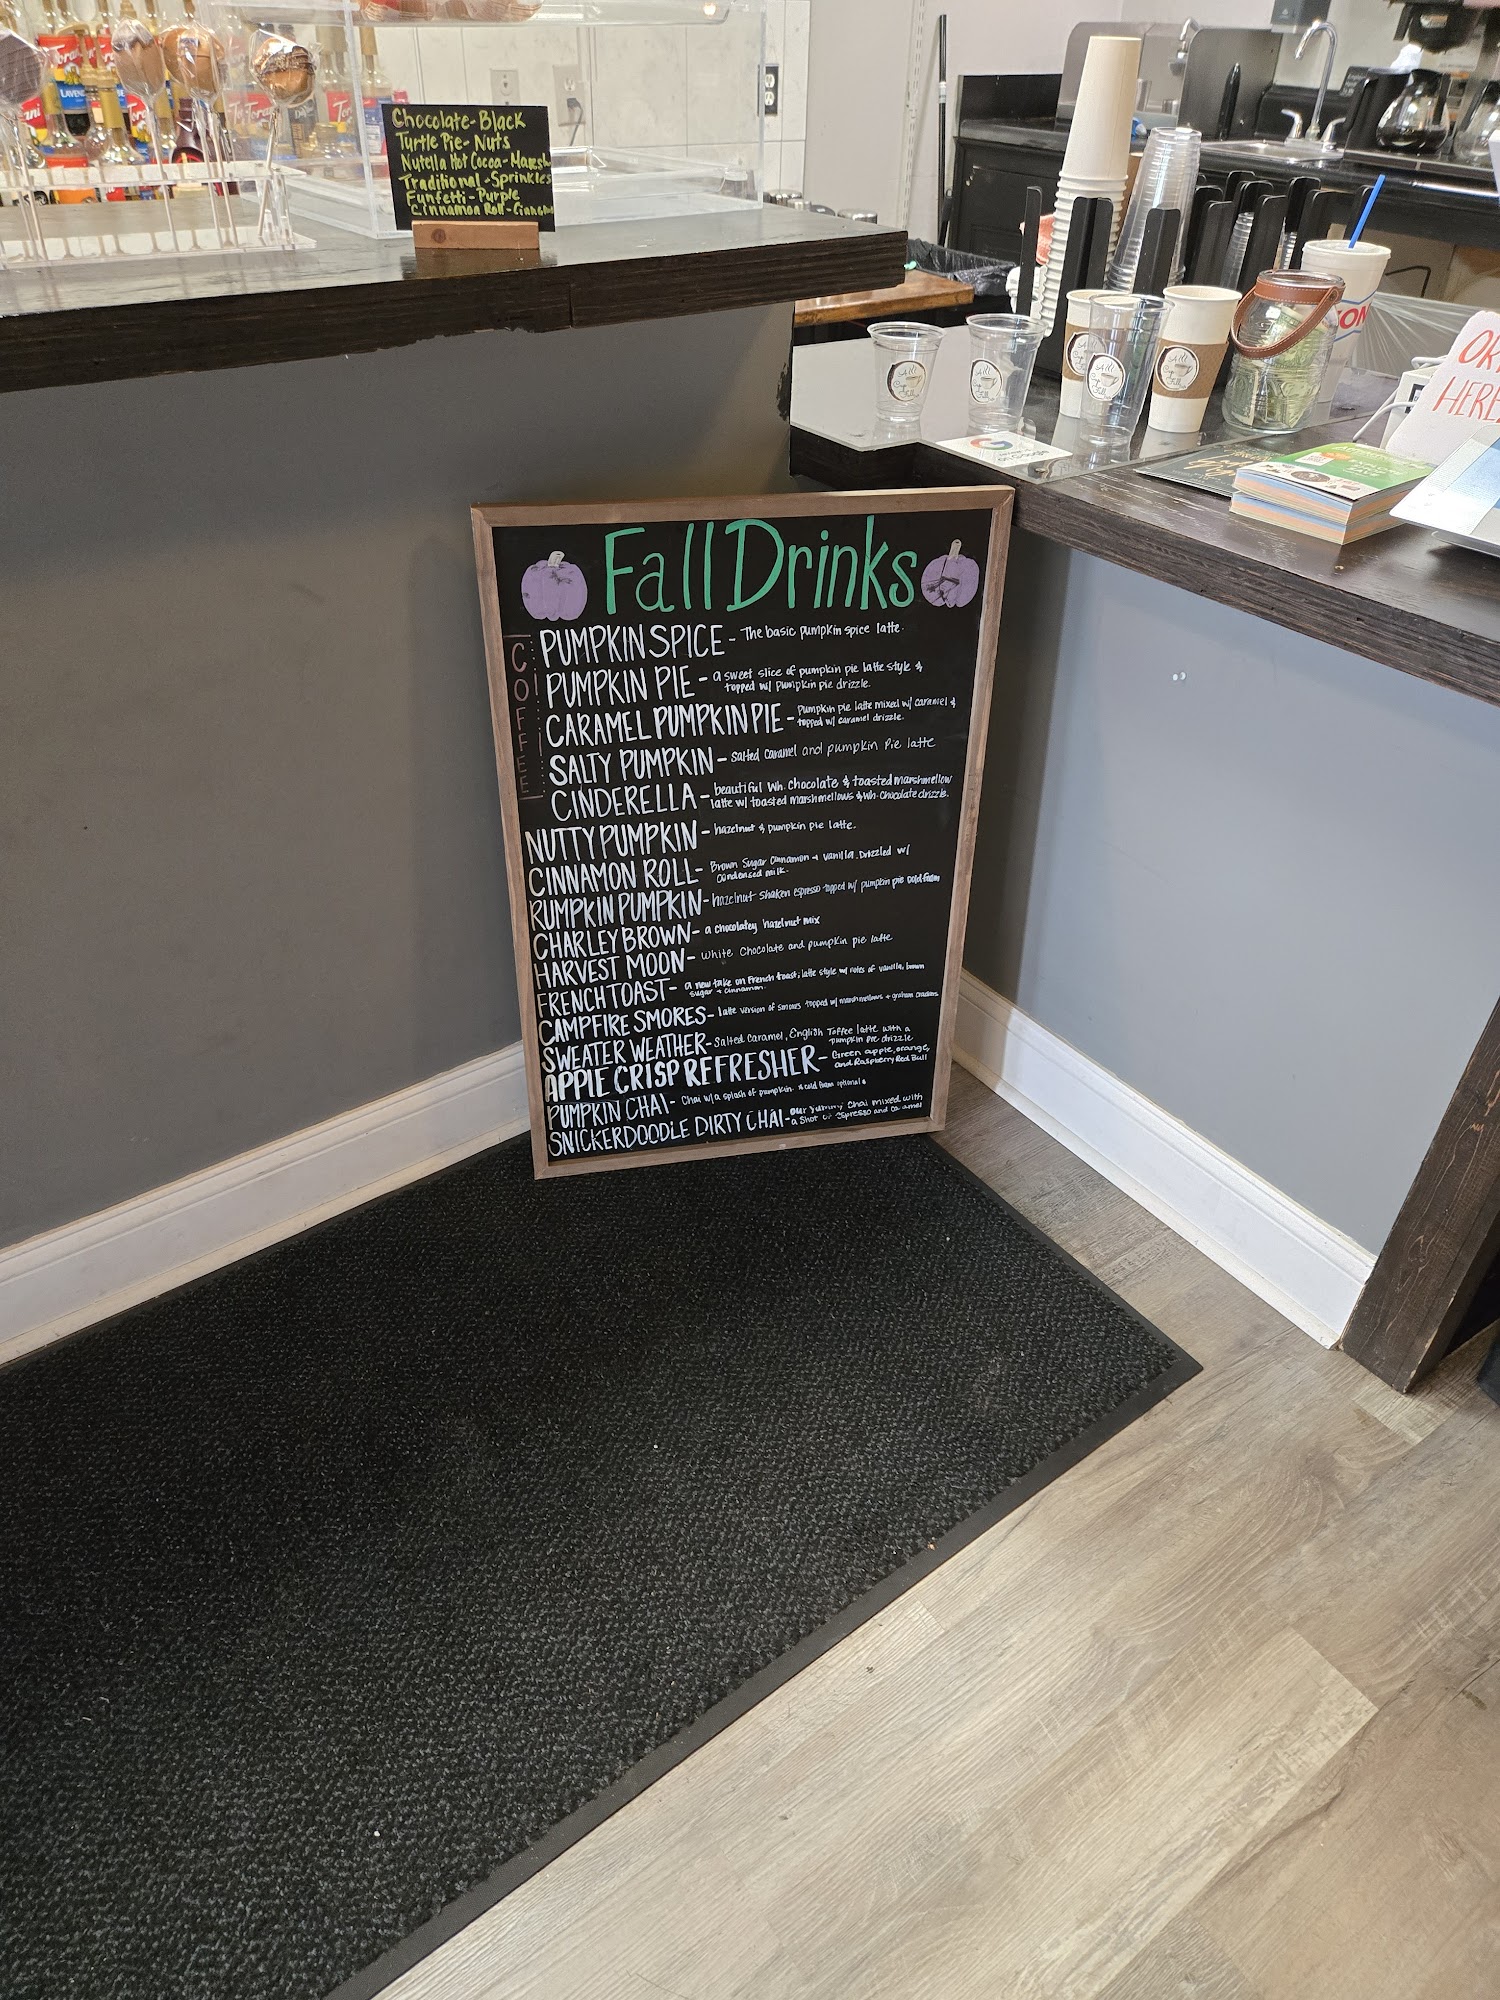 Chocolate-Black
Turtle Pie-Nuts
Nutella Hot Cocoa-Marsh
Traditional-Sprinkles
Funfetti-Purple
Cinnamon Roll-Cinnamon
Torani
LAVENDER
ORDER
HERE
on Google
Fall Drinks
COFFEE
PUMPKIN SPICE - The basic pumpkin spice latte.
PUMPKIN PIE - a sweet slice of pumpkin pie latte style &
topped w/ pumpkin pie drizzle.
CARAMEL PUMPKIN PIE - Pumpkin pie latte mixed w/ caramel &
topped w/ caramel drizzle.
SALTY PUMPKIN - salted caramel and pumpkin pie latte
CINDERELLA - beautiful wh. chocolate & toasted marshmellow
latte w/ toasted marshmellows & wh. chocolate drizzle.
NUTTY PUMPKIN - hazelnut & pumpkin pie latte.
CINNAMON ROLL - Brown Sugar Cinnamon + vanilla. Drizzled w/
condensed milk.
RUMPKIN PUMPKIN - hazelnut shaken espresso topped w/ pumpkin pie cold foam
CHARLEY BROWN - a chocolatey hazelnut mix
HARVEST MOON - White Chocolate and pumpkin pie latte
FRENCH TOAST - a new take on French toast; latte style w/ notes of vanilla, brown
sugar + cinnamon.
CAMPFIRE SMORES - latte version of smores topped w/ marshmellows + graham crackers
SWEATER WEATHER - Salted Caramel, English Toffee latte with a
pumpkin pie drizzle
APPLE CRISP REFRESHER - Green apple, orange,
and Raspberry Red Bull
PUMPKIN CHAI - Chai w/a splash of pumpkin. *cold foam optional*
SNICKERDOODLE DIRTY CHAI - our yummy Chai mixed with
a shot of espresso and caramel